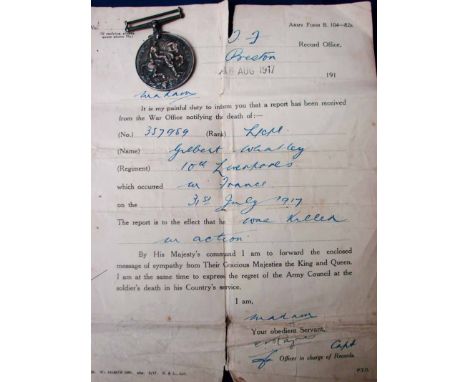 Army Form B. 104—82A.
Record Office,
Preston
AUG 1917
191
Madam
It is my painful duty to inform you that a report has been received
from the War Office notifying the death of:—
(No.) 357969 (Rank) L/Cpl.
(Name) Gilbert Whalley
(Regiment) 10th Liverpools
which occurred in France
on the 31st July 1917
The report is to the effect that he was killed
in action
By His Majesty's command I am to forward the enclosed
message of sympathy from Their Gracious Majesties the King and Queen.
I am at the same time to express the regret of the Army Council at the
soldier's death in his Country's service.
I am,
Madam
Your obedient Servant,
Capt
Officer in charge of Records.
P.T.O.